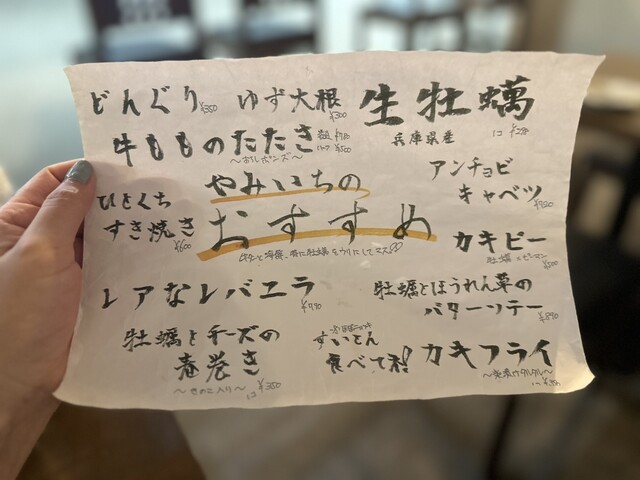 どんぐり ¥350
ゆず大根 ¥300
生牡蠣
兵庫県産
1コ
牛もものたたき
ハーフ ¥500
〜おろしポンズ〜
やみいちの
おすすめ
アンチョビ
キャベツ
ひとくち
すき焼き
¥600
カキピー
牡蠣×ピーマン
¥500
レアなレバニラ
¥770
牡蠣とほうれん草の
バターソテー
¥890
牡蠣とチーズの
春巻き
〜きのこ入り〜
1コ ¥350
すいとん
食べて来!
カキフライ